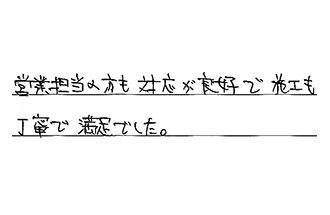 営業担当の方も対応が良好で施工も
丁寧で満足でした。